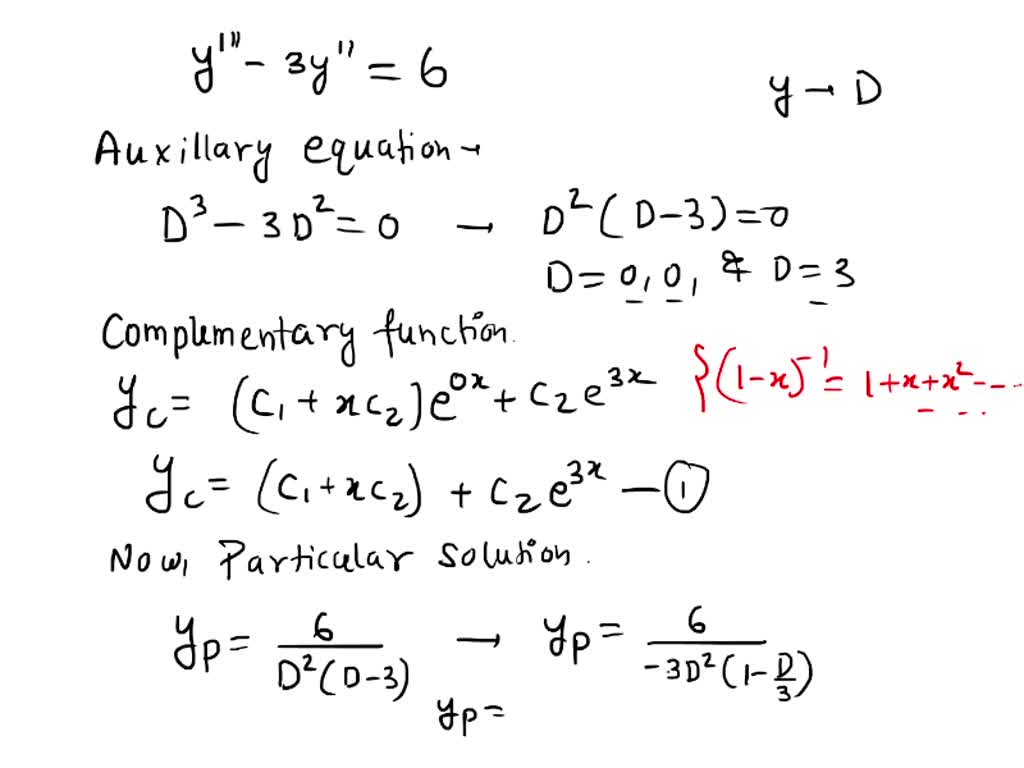 y''' - 3y'' = 6
y → D
Auxillary equation →
D³ - 3D² = 0 → D²(D-3) = 0
D = 0, 0, & D = 3
Complementary function.
y_c = (C₁ + xC₂)e^{0x} + C₂e^{3x} {(1-x)⁻¹ = 1+x+x² -----
y_c = (C₁ + xC₂) + C₂e^{3x} — ①
Now, Particular solution.
y_p = 6/(D²(D-3)) → y_p = 6/(-3D²(1-D/3))
y_p =